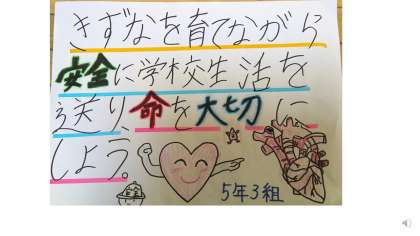 きずなを育てながら
安全に学校生活を
送り命を大切に
しよう。
5年3組